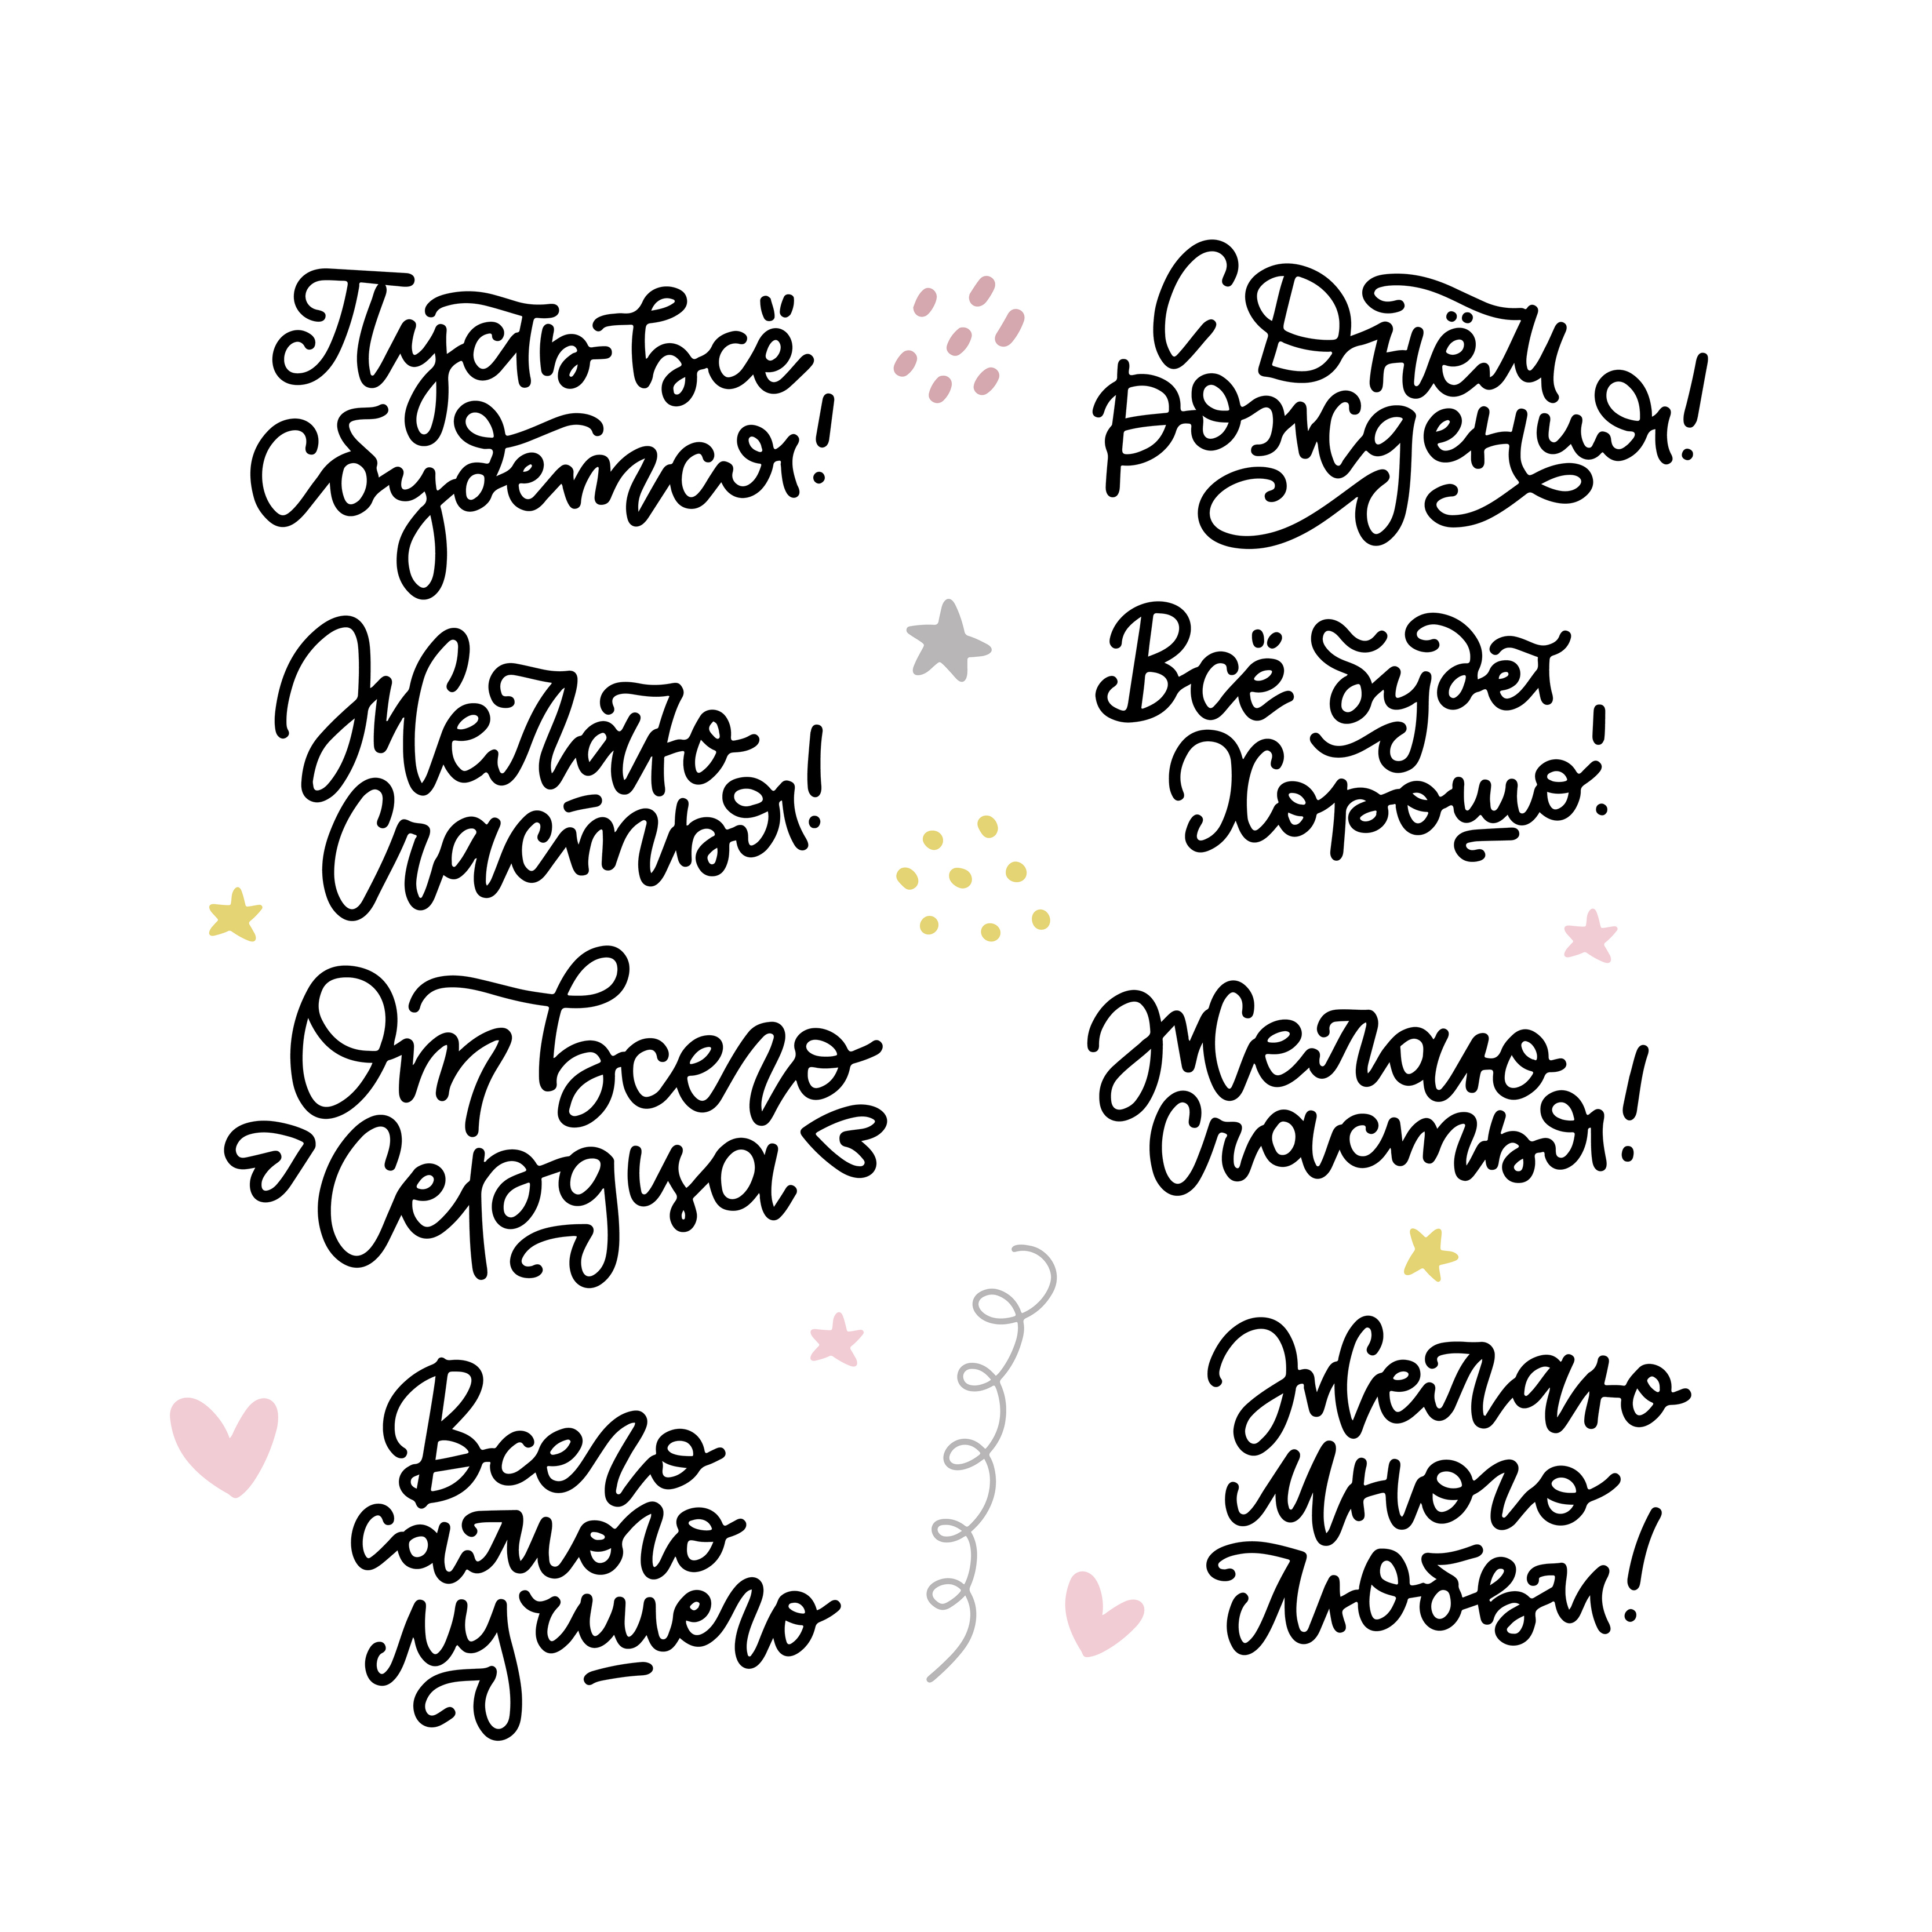 Пусть всё
Сбудется!
С Днём
Рождения!
Желаю
Счастья!
Всё будет
Хорошо!
От Всего
Сердца
Желаю
Счастья!
Всего
самого
лучшего
Желаю
Много
Любви!